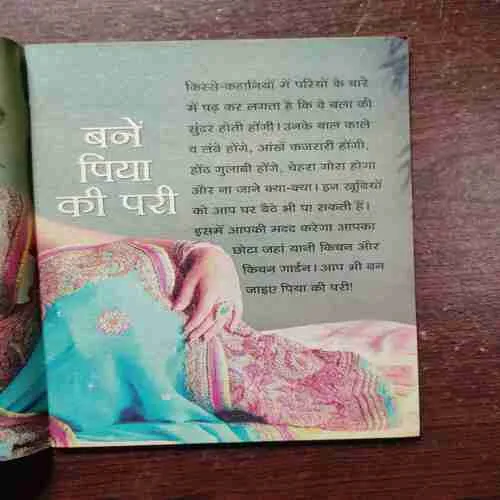 बनें
पिया
की परी
किस्से-कहानियों में परियों के बारे
में पढ़ कर लगता है कि वे बला की
सुंदर होती होंगी। उनके बाल काले
व लंबे होंगे, आंखें कजरारी होंगी,
होंठ गुलाबी होंगे, चेहरा गोरा होगा
और ना जाने क्या-क्या। इन खूबियों
को आप घर बैठे भी पा सकती हैं।
इसमें आपकी मदद करेगा आपका
छोटा जहां यानी किचन और
किचन गार्डन। आप भी बन
जाइए पिया की परी!